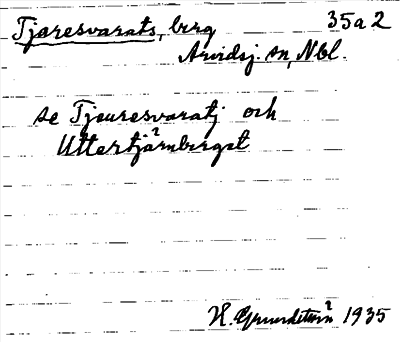 Tjäresvarats, berg 35a2
Arvidsj. sn, Nbl.
se Tjeuresvaratj och
Uttertjärnberget
H. Grundström 1935